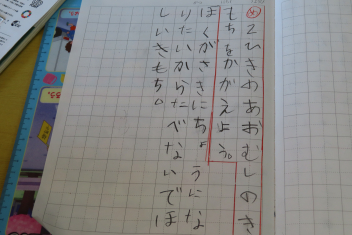 ④2ひきのあおむしのき
もちをかがえよう。
ぼくがさきにちょうにな
りたいからたべないでほ
しいきもち。